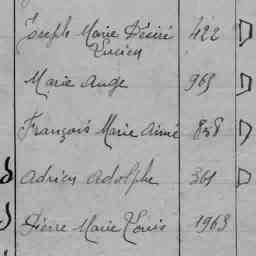 Joseph Marie Désiré 422 D
Lucien
Marie Ange 963 D
François Marie Aimé 858 D
Adrien Adolphe 361 D
Pierre Marie Louis 1963